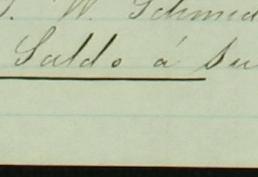 W. Schmid
Saldo á su